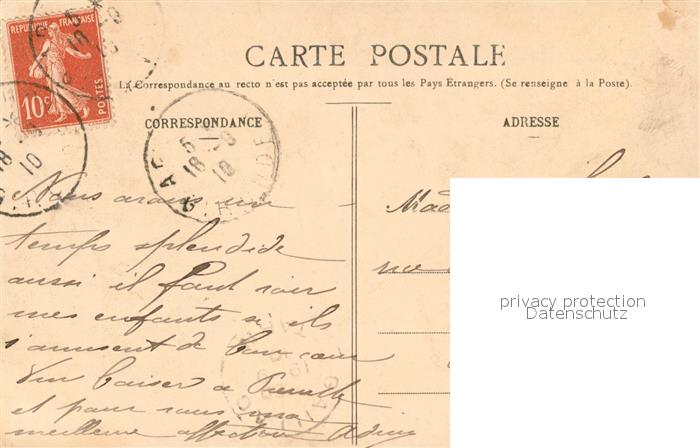 REPUBLIQUE FRANÇAISE
10c POSTES
CARTE POSTALE
La Correspondance au recto n'est pas acceptée par tous les Pays Etrangers. (Se renseigne à la Poste).
CORRESPONDANCE
ADRESSE
Nous avons un
temps splendide
aussi il faut voir
mes enfants si ils
s'amusent de bon cœur
Un baiser à
et pour vous ma
meilleure affection
Mad
privacy protection
Datenschutz